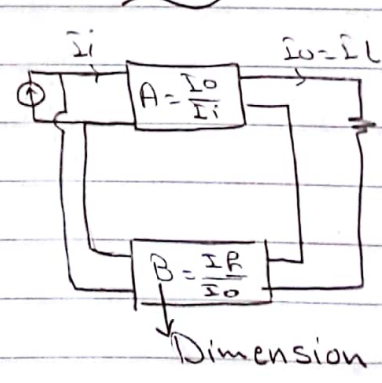 Ii
Io=IL
A=Io/Ii
B=If/Io
Dimension